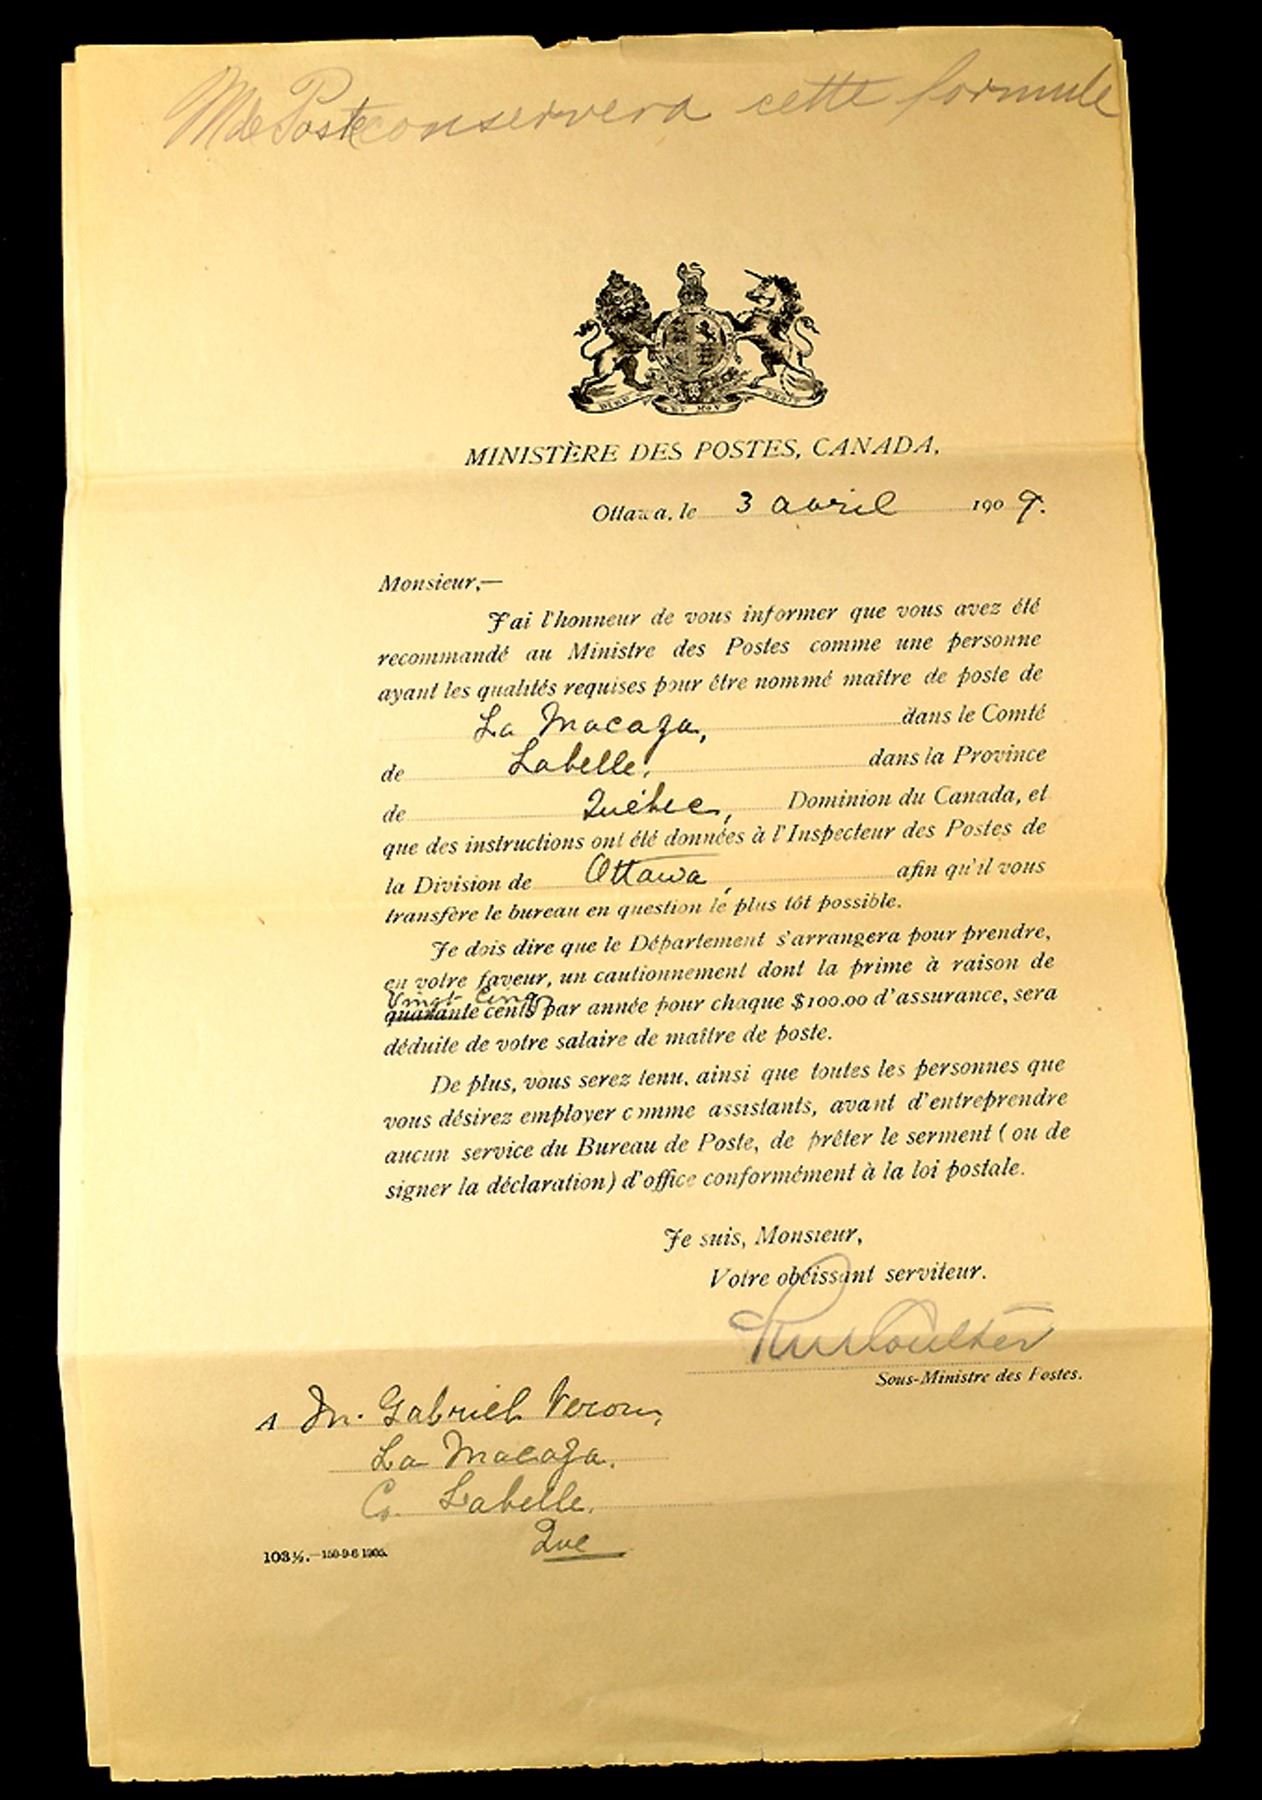 M de Poste conservera cette formule
DIEU ET MON DROIT
MINISTÈRE DES POSTES, CANADA.
Ottawa, le 3 avril 1909.
Monsieur,—
J'ai l'honneur de vous informer que vous avez été
recommandé au Ministre des Postes comme une personne
ayant les qualités requises pour être nommé maître de poste de
La Macaza, dans le Comté
de Labelle, dans la Province
de Québec, Dominion du Canada, et
que des instructions ont été données à l'Inspecteur des Postes de
la Division de Ottawa, afin qu'il vous
transfère le bureau en question le plus tôt possible.
Je dois dire que le Département s'arrangera pour prendre,
en votre faveur, un cautionnement dont la prime à raison de
Vingt Cinq
quarante cents par année pour chaque $100.00 d'assurance, sera
déduite de votre salaire de maître de poste.
De plus, vous serez tenu, ainsi que toutes les personnes que
vous désirez employer comme assistants, avant d'entreprendre
aucun service du Bureau de Poste, de prêter le serment (ou de
signer la déclaration) d'office conformément à la loi postale.
Je suis, Monsieur,
Votre obéissant serviteur.
Coulter
Sous-Ministre des Postes.
A M. Gabriel
La Macaza.
Co. Labelle.
Que
103½.—150-9-6 1905.